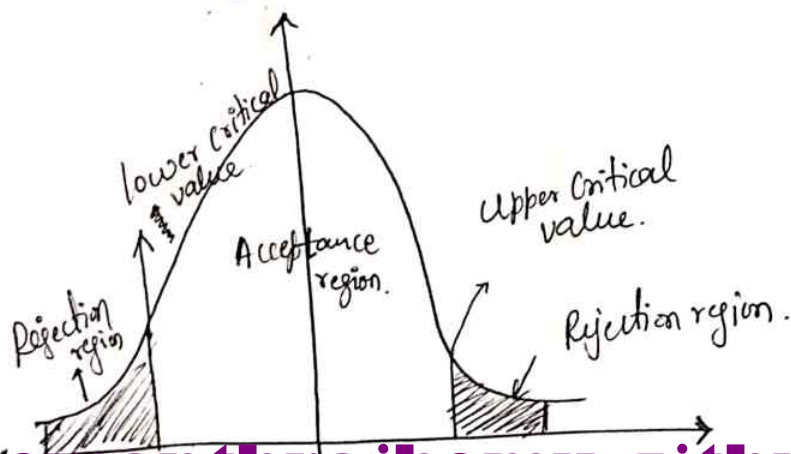 lower critical
value
Acceptance
region.
Upper Critical
value.
Rejection
region
Rejection region.